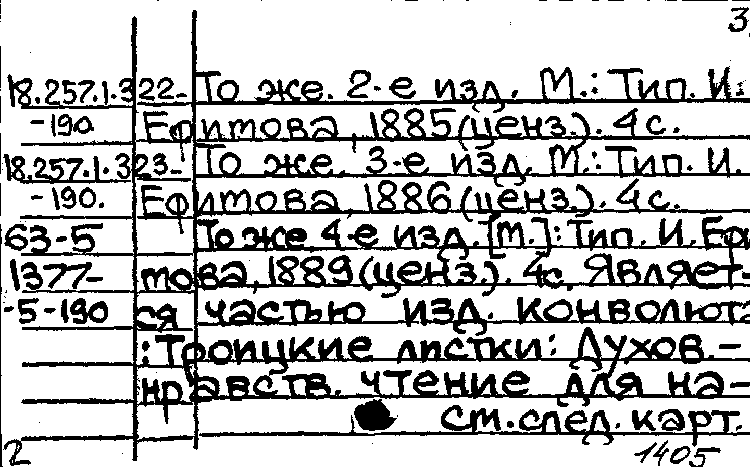 3
18.257.1.322- То же. 2-е изд. М.: Тип. И.
-190 Ефимова, 1885(ценз.). 4с.
18.257.1.323- То же. 3-е изд. М.: Тип. И.
-190. Ефимова, 1886(ценз.). 4с.
63-5 То же 4-е изд. [М.]: Тип. И. Ефи
1377- мова, 1889(ценз.). 4с. Являет-
-5-190 ся частью изд. конволюта
: Троицкие листки: Духов.-
нравств. чтение для на-
см. след. карт.
2 1405